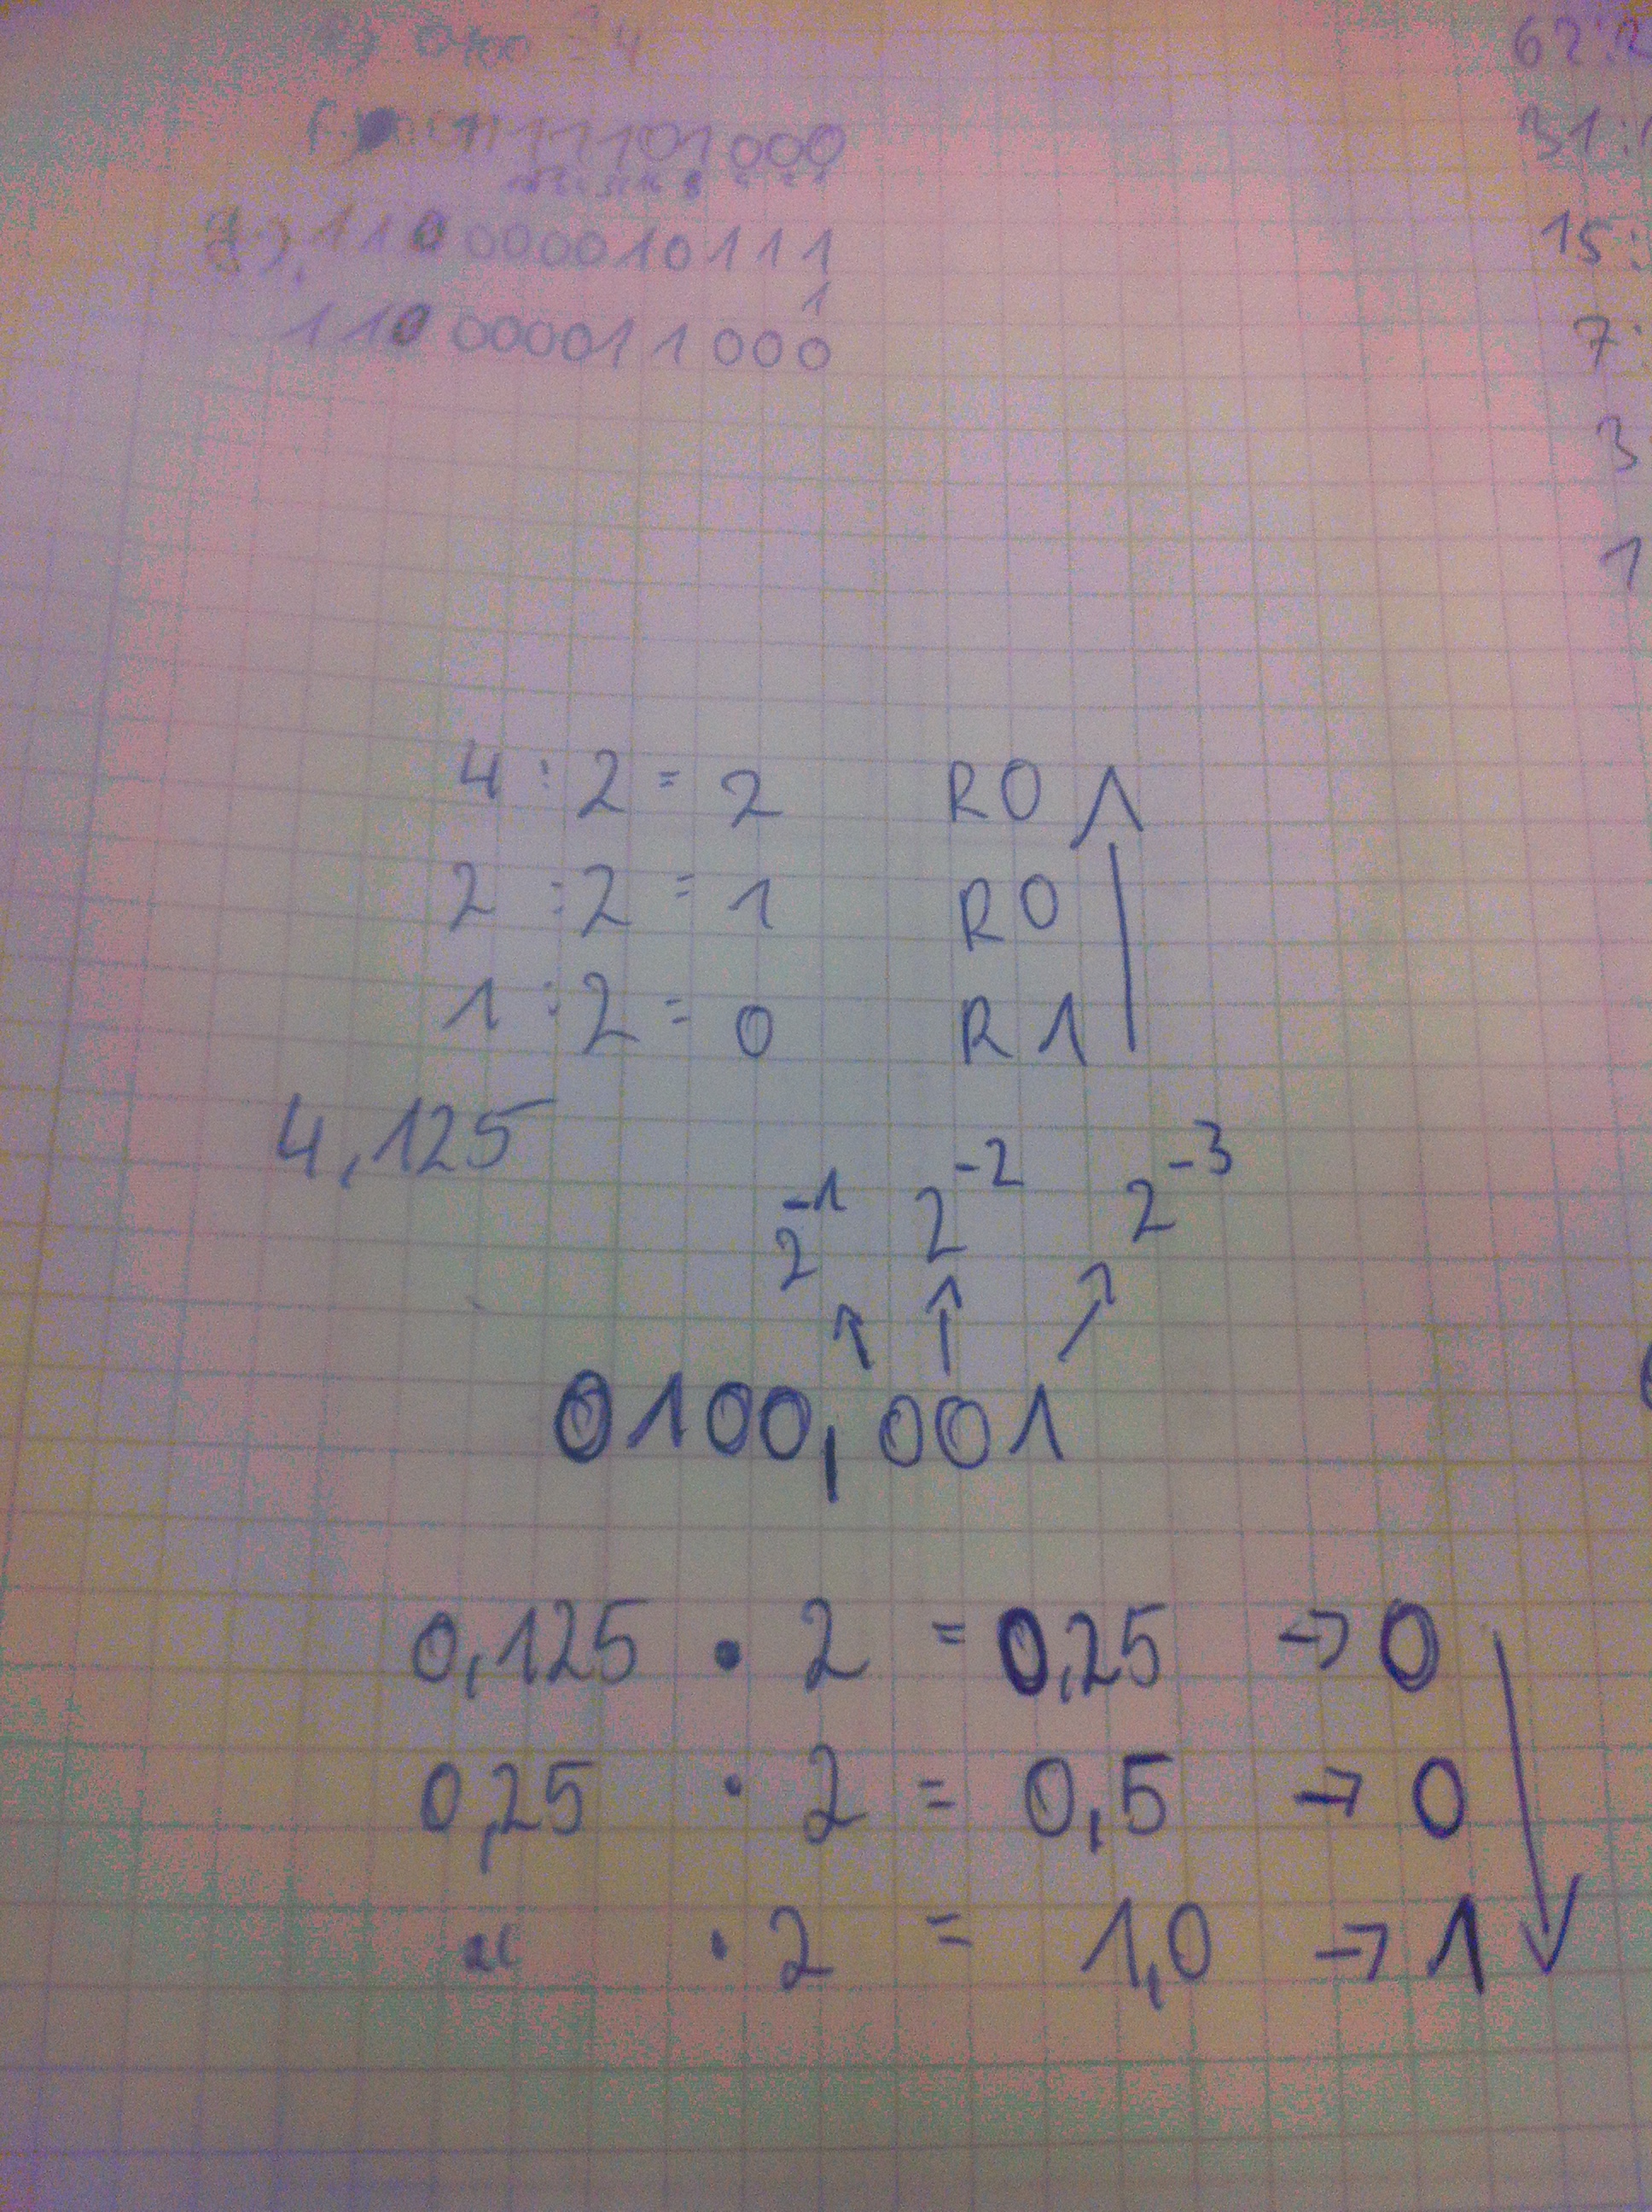 0100 = 4
1101000
g.) 110000010111
1
110000011000
62:2
31:
15:
7:
3
1
4 : 2 = 2 R0
2 : 2 = 1 R0
1 : 2 = 0 R1
4,125
2⁻¹ 2⁻² 2⁻³
0100,001
0,125 · 2 = 0,25 → 0
0,25 · 2 = 0,5 → 0
· 2 = 1,0 → 1